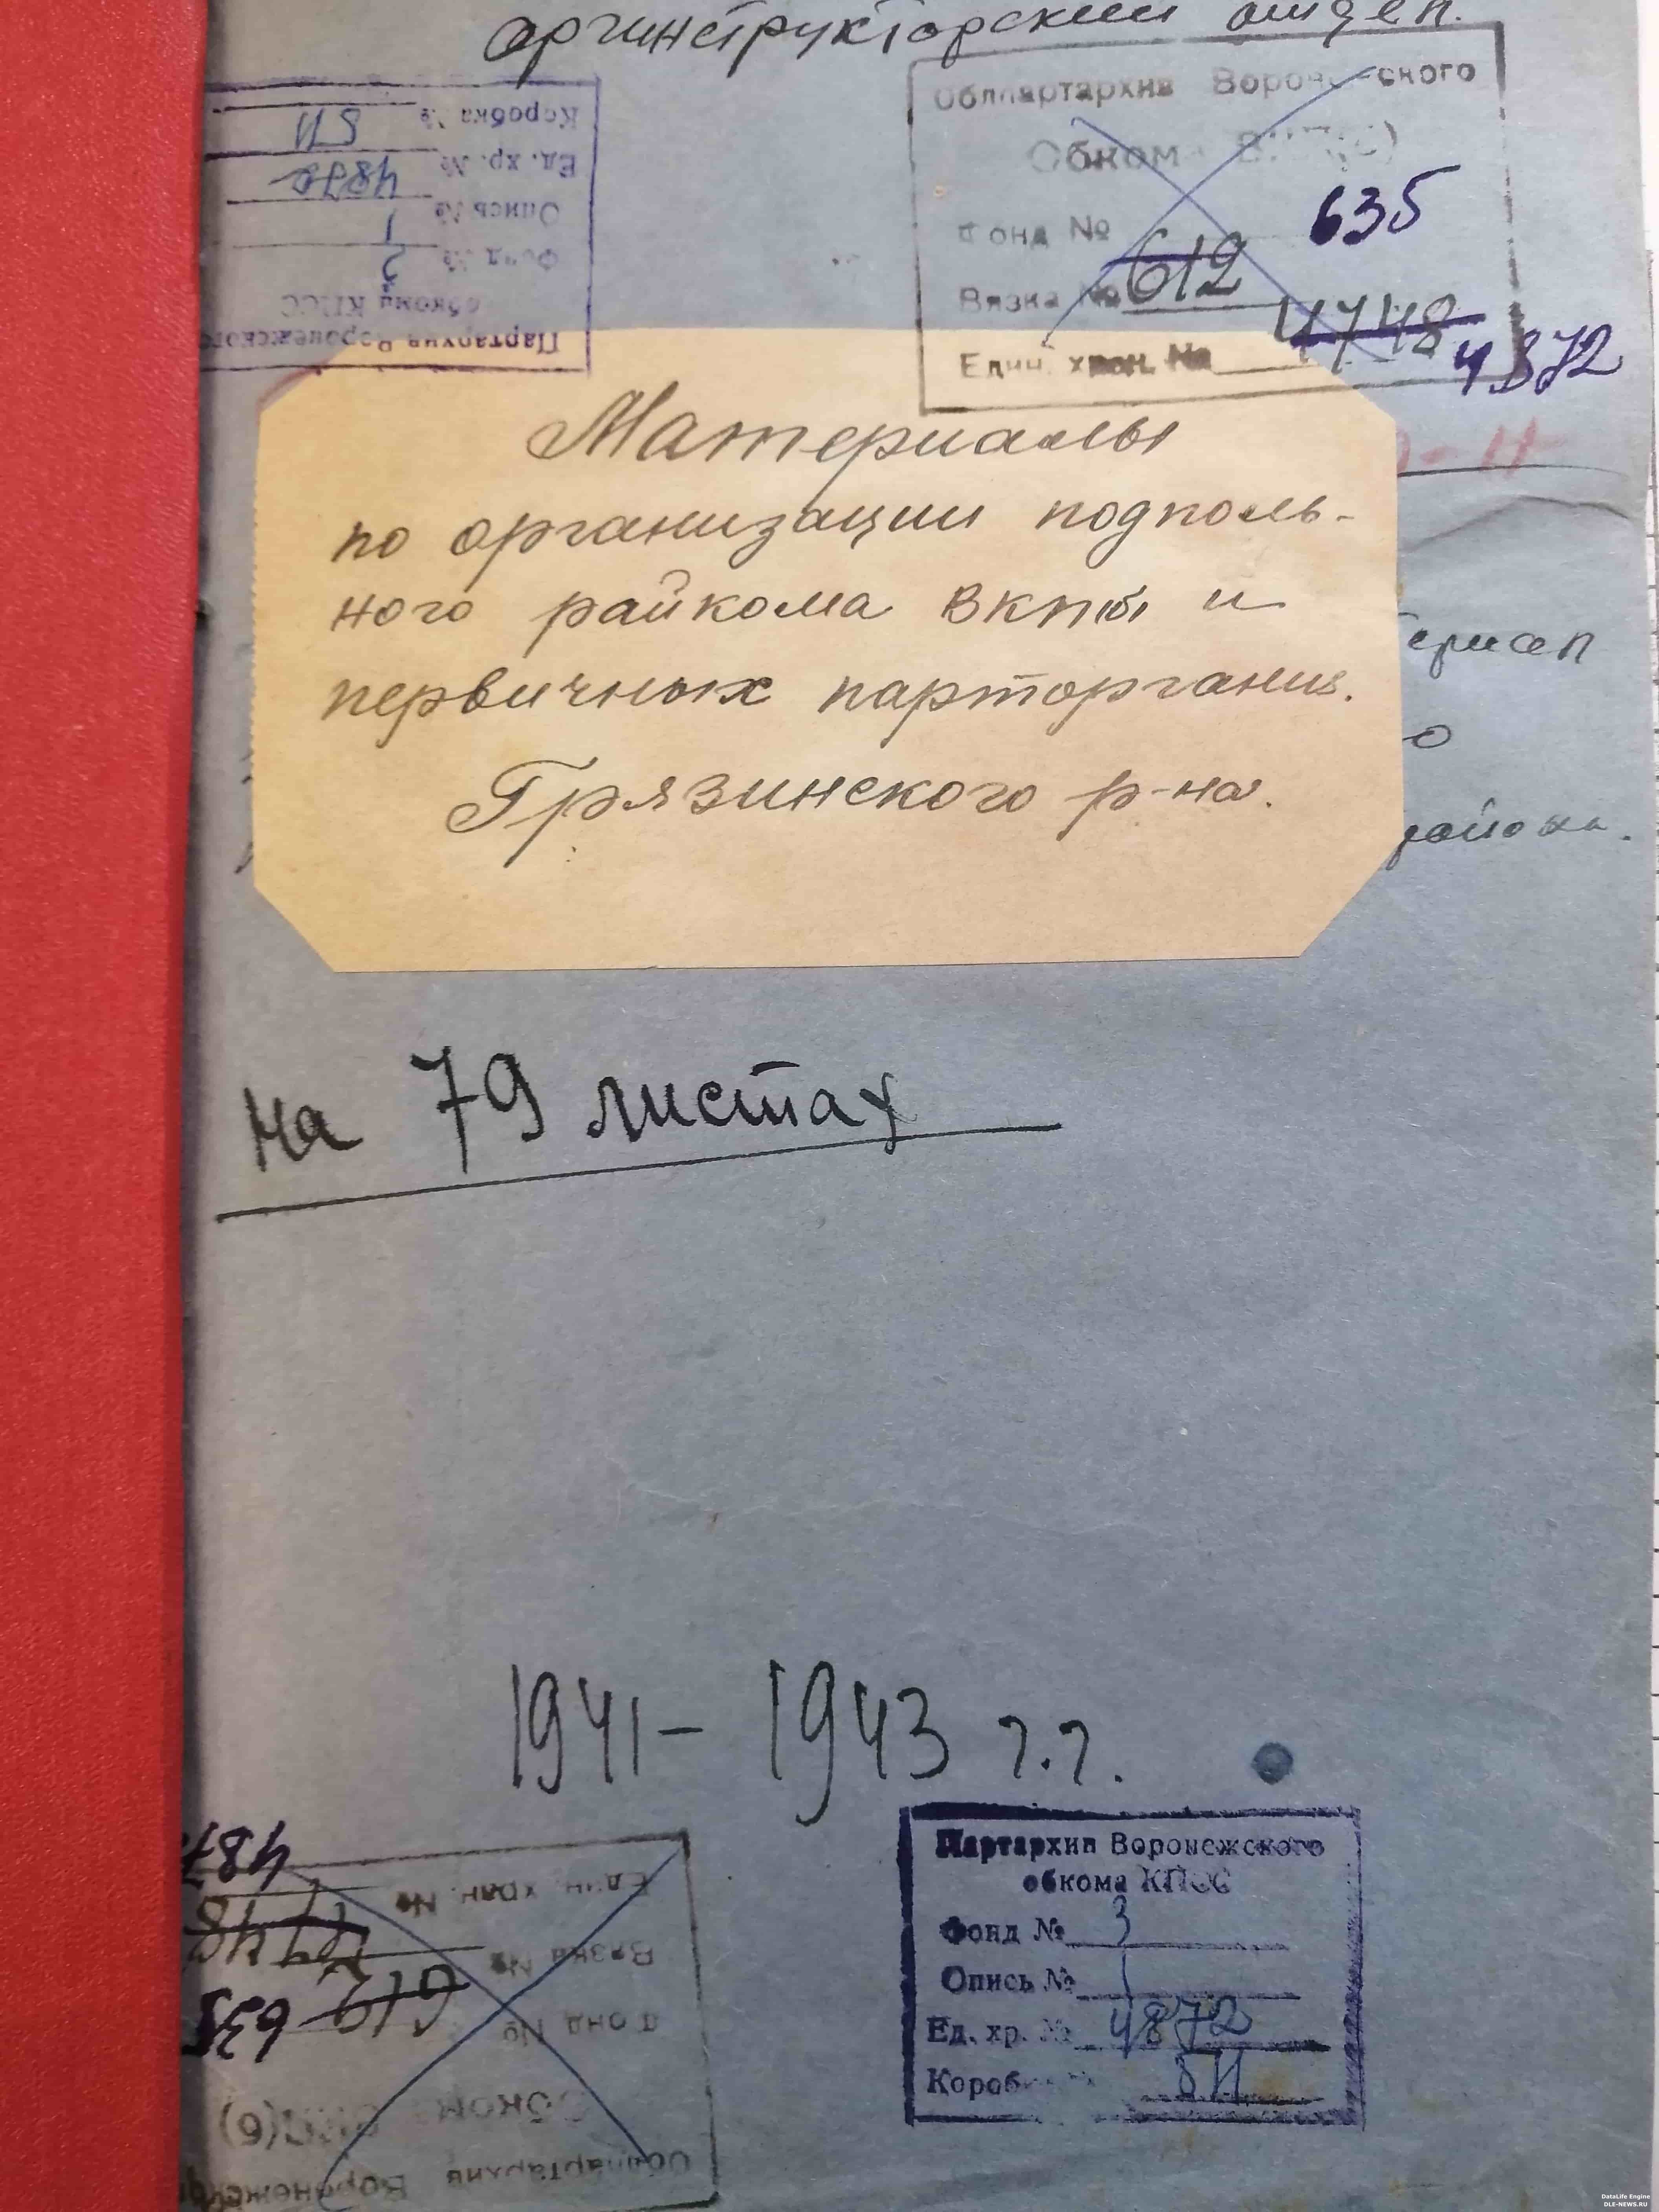 оргинструкторский отдел.
Облпартархив
Обкома
Фонд №
635
Вязка № 612
Един. хран. № 4748 4872
Коробка №
Ед. хр. № 4872
Опись № 1
Фонд № 3
обкома КПСС
Партархив Воронежского
Материалы
по организации подполь-
ного райкома ВКП(б) и
первичных парторганиз.
Грязинского р-на.
района.
на 79 листах
1941 - 1943 г.г.
Партархив Воронежского
обкома КПСС
Фонд № 3
Опись № 1
Ед. хр. № 4872
Един. хран. № 4748
Вязка № 612 635
Фонд №
Обком
Облпартархив
DataLife Engine
DLE-NEWS.RU